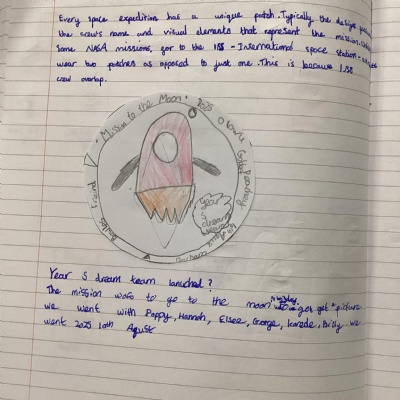 Every space expedition has a unique patch. Typically the design
the crew's name and visual elements that represent the mission.
Some NASA missions, gor to the ISS - International space Station -
wear two patches as opposed to just one. This is because ISS
crew overlap.
Mission to the Moon
2025
Year
5
dream
Year 5 dream team lanuched?
The mission was to go to the moon get "picture
we went with Poppy, Hannah, Elsee, George, Billy. we
went 2025 10th Agust